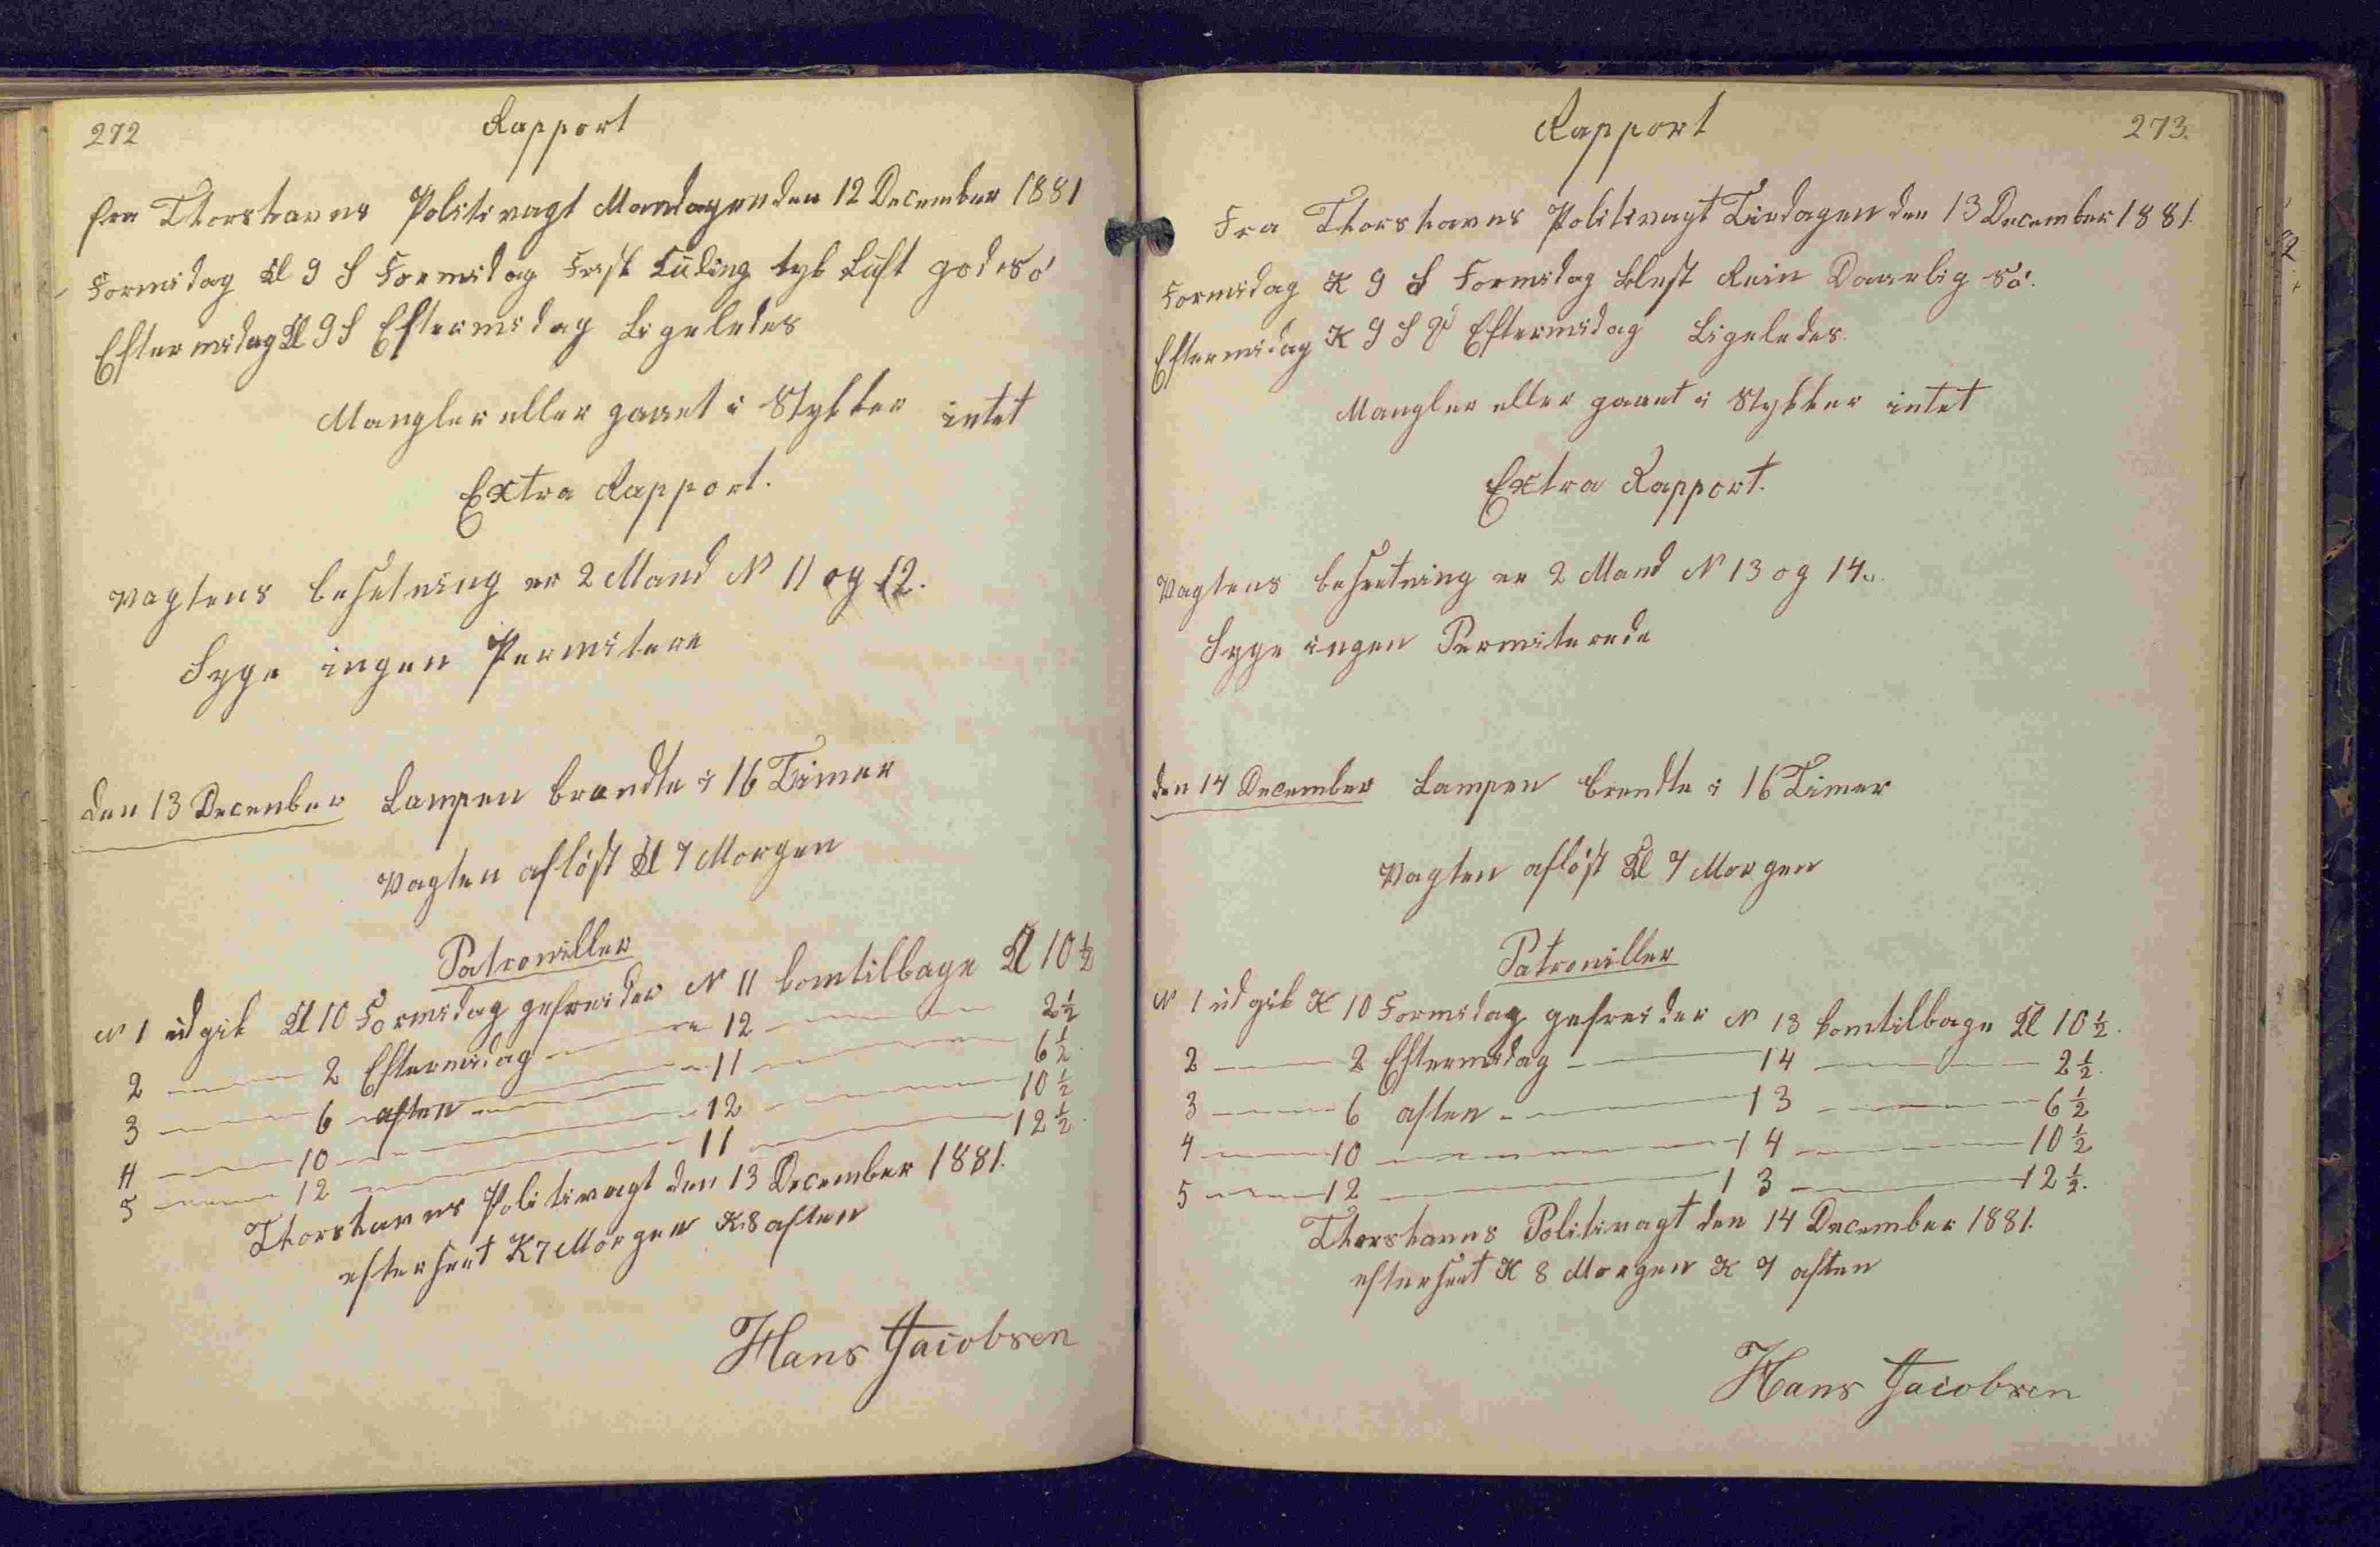 272
Rapport
fra Thorshavns Politivagt Mandagen den 12 December 1881
Formidag Kl 9 S Formidag Frisk Kuling tyk Luft god Sö
Eftermidag Kl 9 S Eftermidag Ligeledes
Mangler eller gaaet i Stykker intet
Extra Rapport.
Vagtens besetning er 2 Mand N 11 og 12.
Syge ingen Permitere
den 13 December Lampen brendte i 16 Timer
Vagten aflöst Kl 7 Morgen
Patroviller
N 1 udgik Kl 10 Formidag gefreider N 11 komtilbage Kl 10 ½
2 — 2 Eftermidag — 12 — 2 ½
3 — 6 aften — 11 — 6 ½
4 — 10 — 12 — 10 ½
5 — 12 — 11 — 12 ½
Thorshavns Politivagt den 13 December 1881.
efterseet K 7 Morgen K 8 aften
Hans Jacobsen
Rapport
273.
Fra Thorshavns Politivagt Tirdagen den 13 December 1881.
Formidag K 9 S Formidag blest Rein Daarlig Sö.
Eftermidag K 9 S V Eftermidag Ligeledes.
Mangler eller gaaet i Stykker intet
Extra Rapport.
Vagtens besetning er 2 Mand N 13 og 14.
Syge ingen Permiterede
den 14 December Lampen brendte i 16 Timer
Vagten aflöst Kl 7 Morgen
Patroviller
N 1 udgik K 10 Formidag gefreider N 13 komtilbage Kl 10 ½.
2 — 2 Eftermidag — 14 — 2 ½.
3 — 6 aften — 13 — 6 ½
4 — 10 — 14 — 10 ½
5 — 12 — 13 — 12 ½.
Thorshanns Politivagt den 14 December 1881.
efterseet K 8 Morgen K 7 aften
Hans Jacobsen